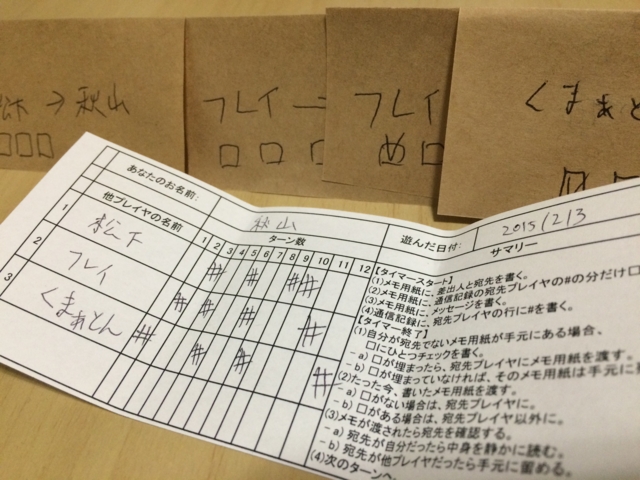 → 秋山
□□□
フレイー
□ □
フレイ
め□
くまぁと
あなたのお名前:
秋山
遊んだ日付:
2015/2/3
他プレイヤの名前
ターン数
サマリー
1 2 3 4 5 6 7 8 9 10 11 12
1 松下
# # ##
2 フレイ
# # # #
3 くまぁとん
# # # #
【タイマースタート】
(1)メモ用紙に、差出人と宛先を書く。
(2)メモ用紙に、通信記録の宛先プレイヤの#の分だけ□
(3)メモ用紙に、メッセージを書く。
(4)通信記録に、宛先プレイヤの行に#を書く。
【タイマー終了】
(1)自分が宛先でないメモ用紙が手元にある場合、
□にひとつチェックを書く。
-a) □が埋まったら、宛先プレイヤにメモ用紙を渡す。
-b) □が埋まっていなければ、そのメモ用紙は手元に
(2)たった今、書いたメモ用紙を渡す。
-a) □がない場合は、宛先プレイヤに。
-b) □がある場合は、宛先プレイヤ以外に。
(3)メモが渡されたら宛先を確認する。
-a) 宛先が自分だったら中身を静かに読む。
-b) 宛先が他プレイヤだったら手元に留める。
(4)次のターンへ